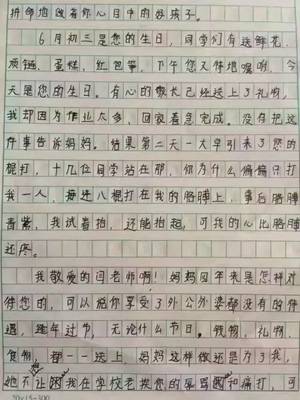 拼命地做着你心目中的好孩子。
6月初三是您的生日，同学们有送鲜花、
项链、蛋糕、红包等，下午您又仔细嘱咐，今
天是您的生日。有心的家长已经送上了礼物，
我却因为作业太多，回家着急完成。没有把这
件事告诉妈妈。结果第二天一大早引来了您的
棍打，十几位同学站在那，你为什么偏偏只打
我一人，每还八棍打在我的胳膊上，事后胳膊
青紫，我试着抬，还能抬起，可我的心比胳膊
还疼。
我敬爱的闫老师啊！妈妈四年来是怎样对
待您的，可以说你享受了外公外婆都没有的待
遇，逢年过节，无论什么节日。钱物，礼物，
食物，都一一送上，妈妈这样做还是为了我，
她不让我在学校老挨您的辱骂和痛打，可
20×15=300